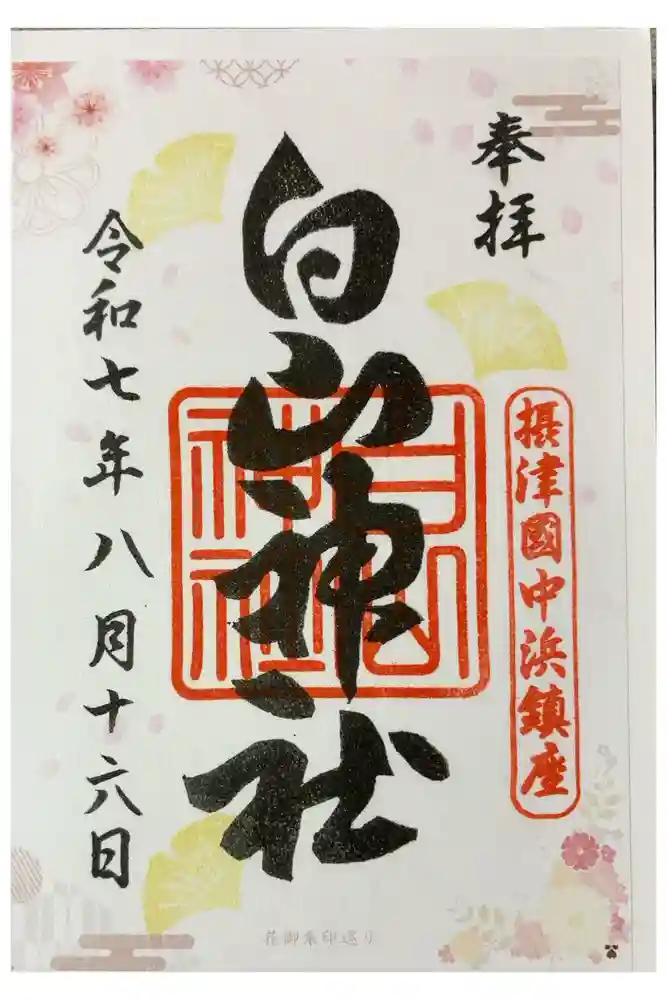 奉拝
摂津國中浜鎮座
白山神社
白山神社
令和七年八月十六日
花御朱印巡り